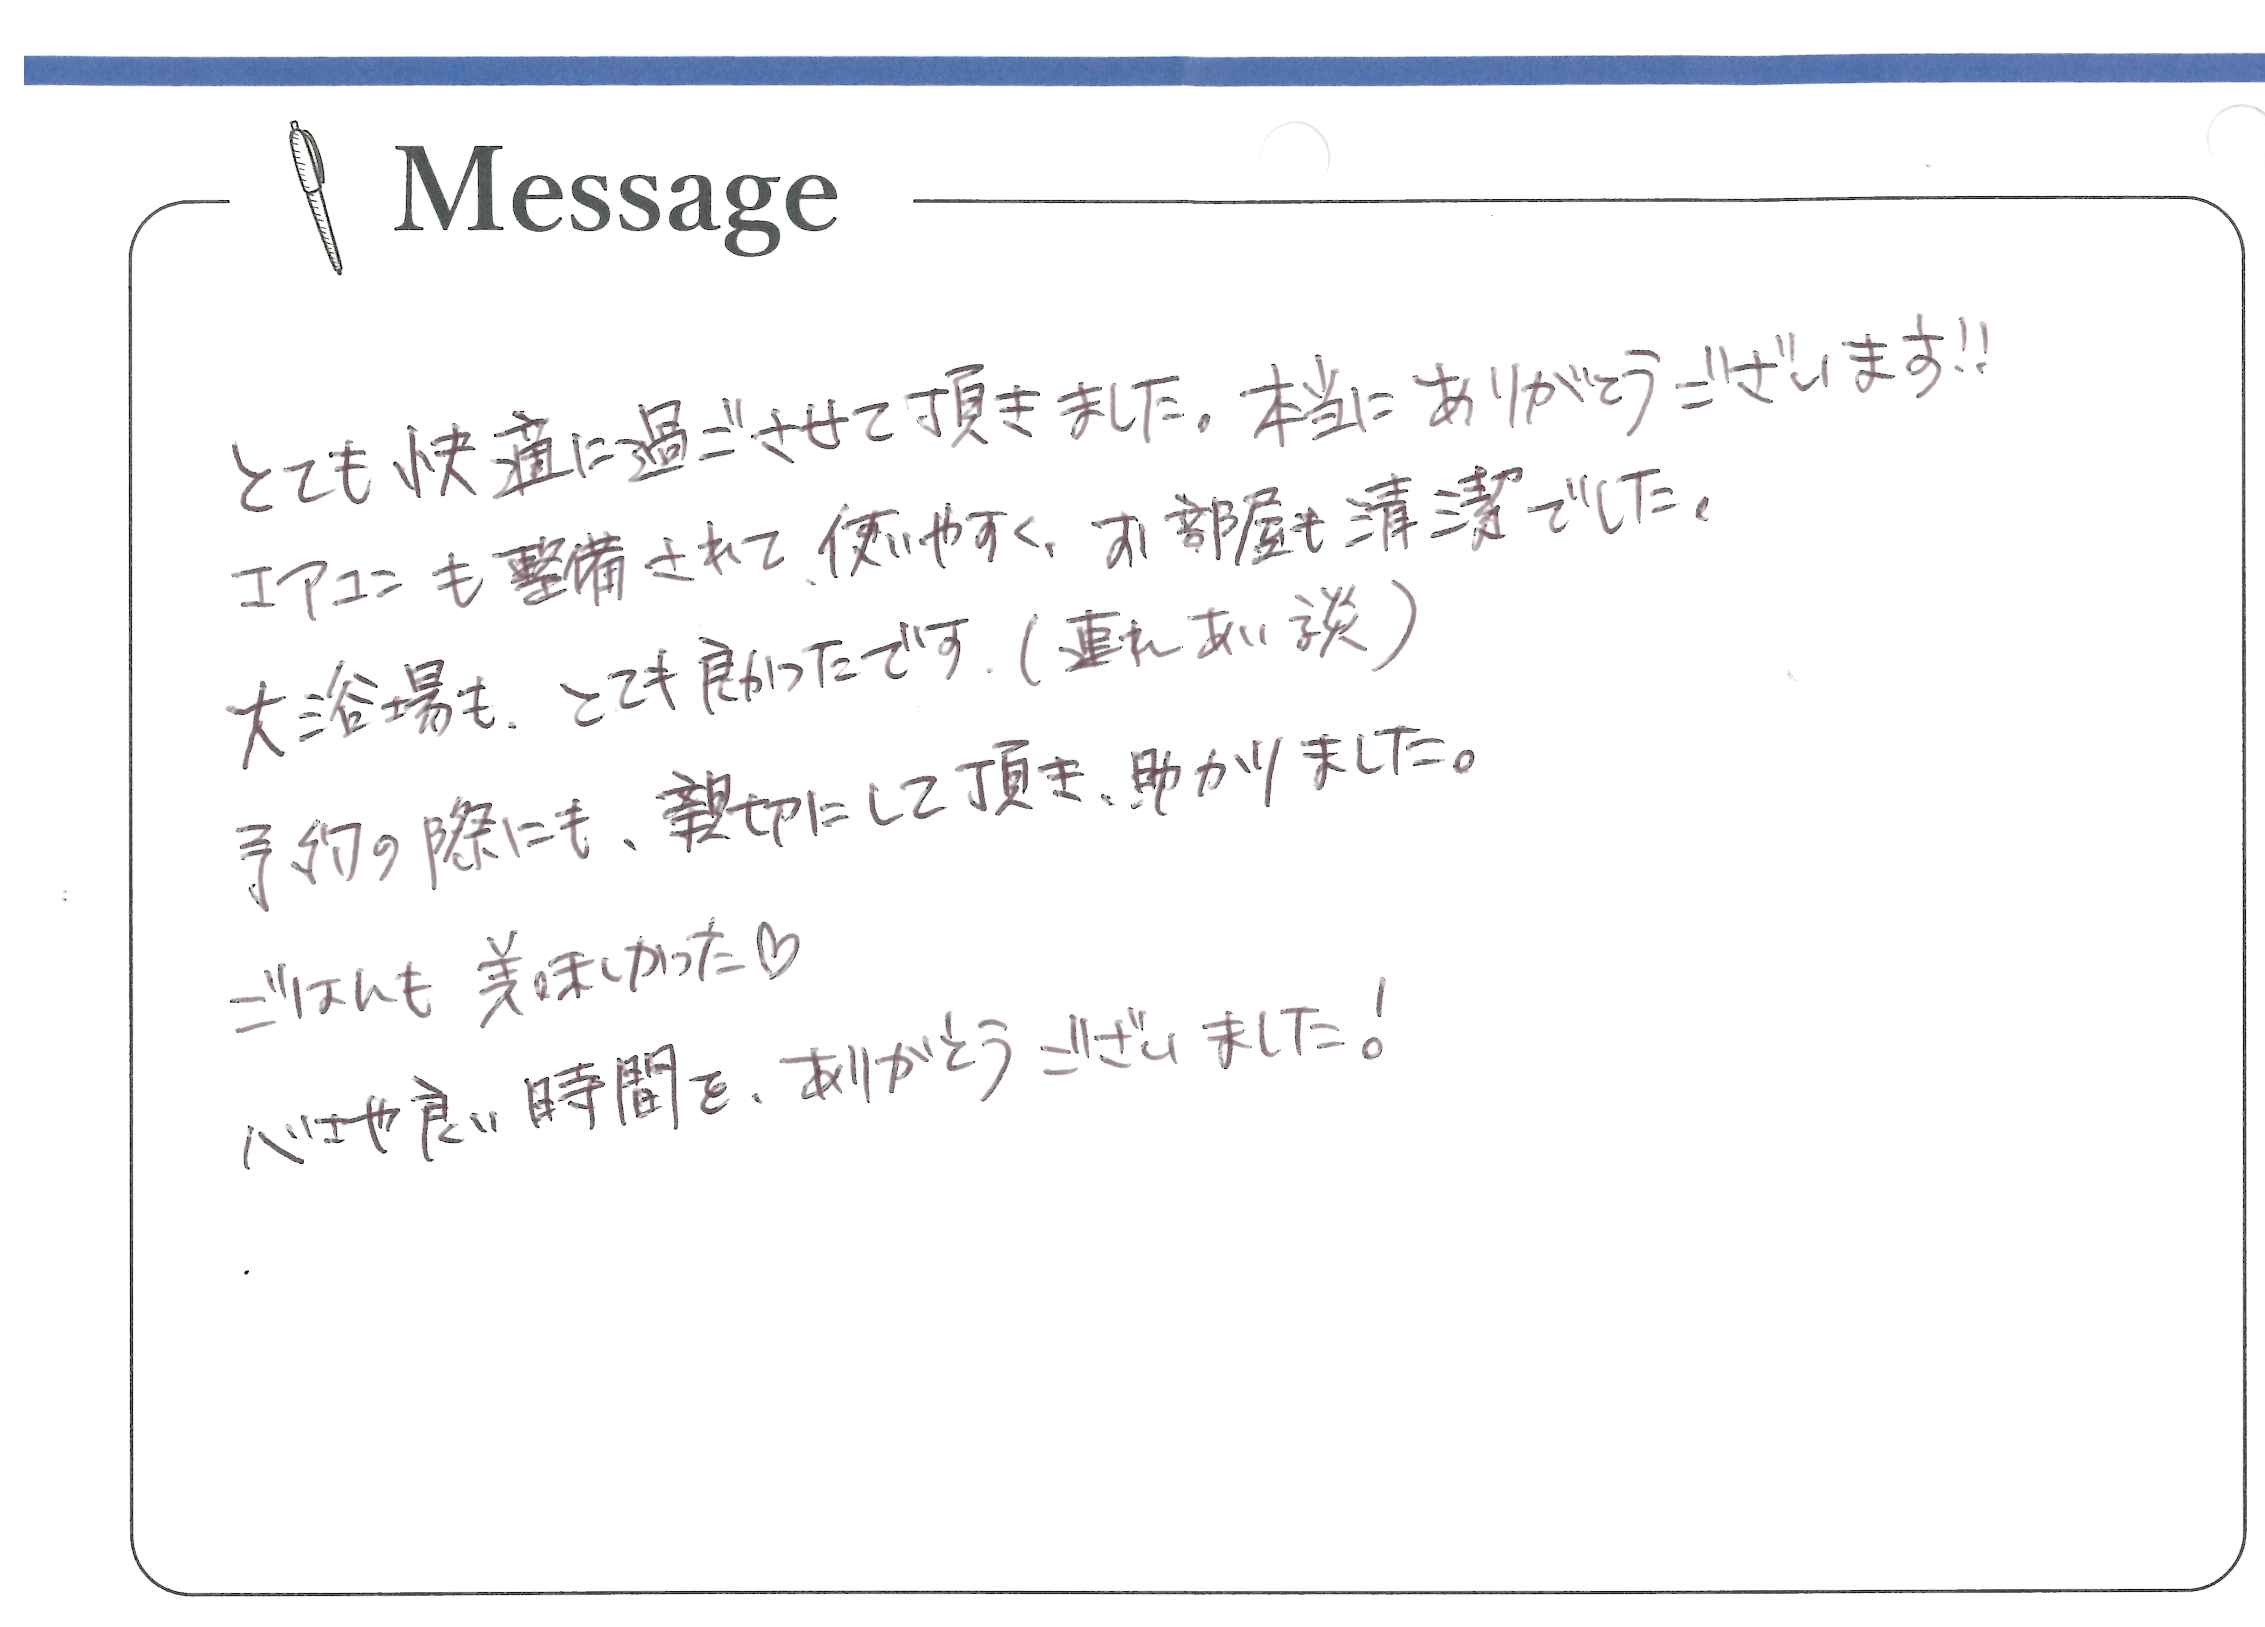 Message
とても快適に過ごさせて頂きました。本当にありがとうございます!!
エアコンも整備されて、使いやすく、お部屋も清潔でした。
大浴場も、とても良かったです。(連れあい談)
予約の際にも、親切にして頂き、助かりました。
ごはんも美味しかった♡
心はや良い時間を、ありがとうございました!